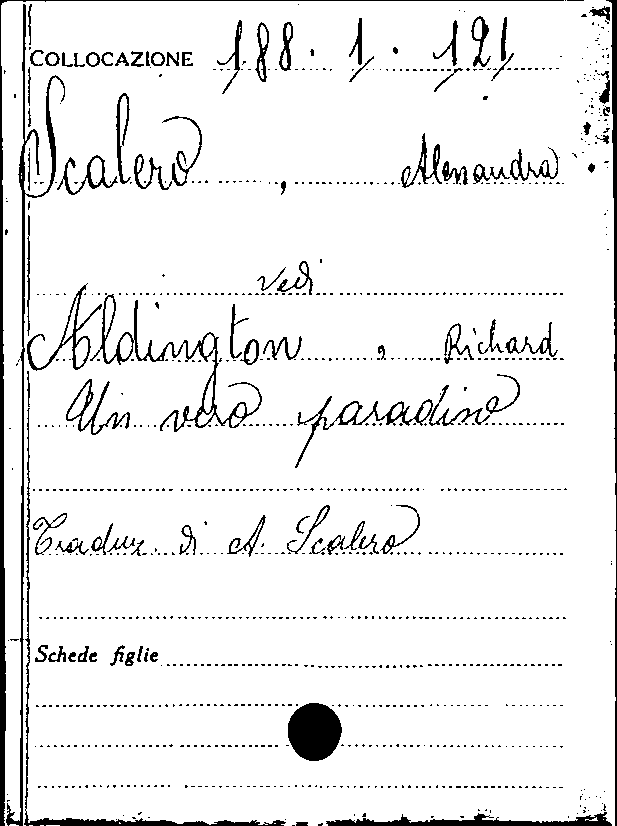 COLLOCAZIONE 188. 1. 121
Scalero, Alessandra
vedi
Aldington, Richard
Un vero paradiso
Traduz. di A. Scalero
Schede figlie